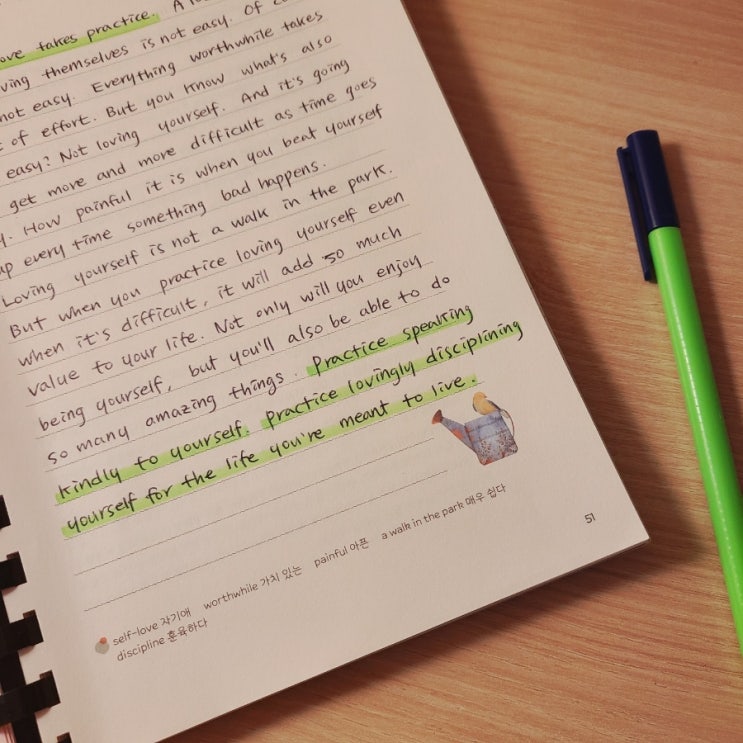 ove takes practice. A
ving themselves is not easy. Of
not easy. Everything worthwhile takes
of effort. But you know what's also
easy? Not loving yourself. And it's going
get more and more difficult as time goes
y. How painful it is when you beat yourself
up every time something bad happens.
Loving yourself is not a walk in the park.
But when you practice loving yourself even
when it's difficult, it will add so much
value to your life. Not only will you enjoy
being yourself, but you'll also be able to do
so many amazing things. Practice speaking
kindly to yourself. Practice lovingly disciplining
yourself for the life you're meant to live.
51
self-love 자기애 worthwhile 가치 있는 painful 아픈 a walk in the park 매우 쉽다
discipline 훈육하다